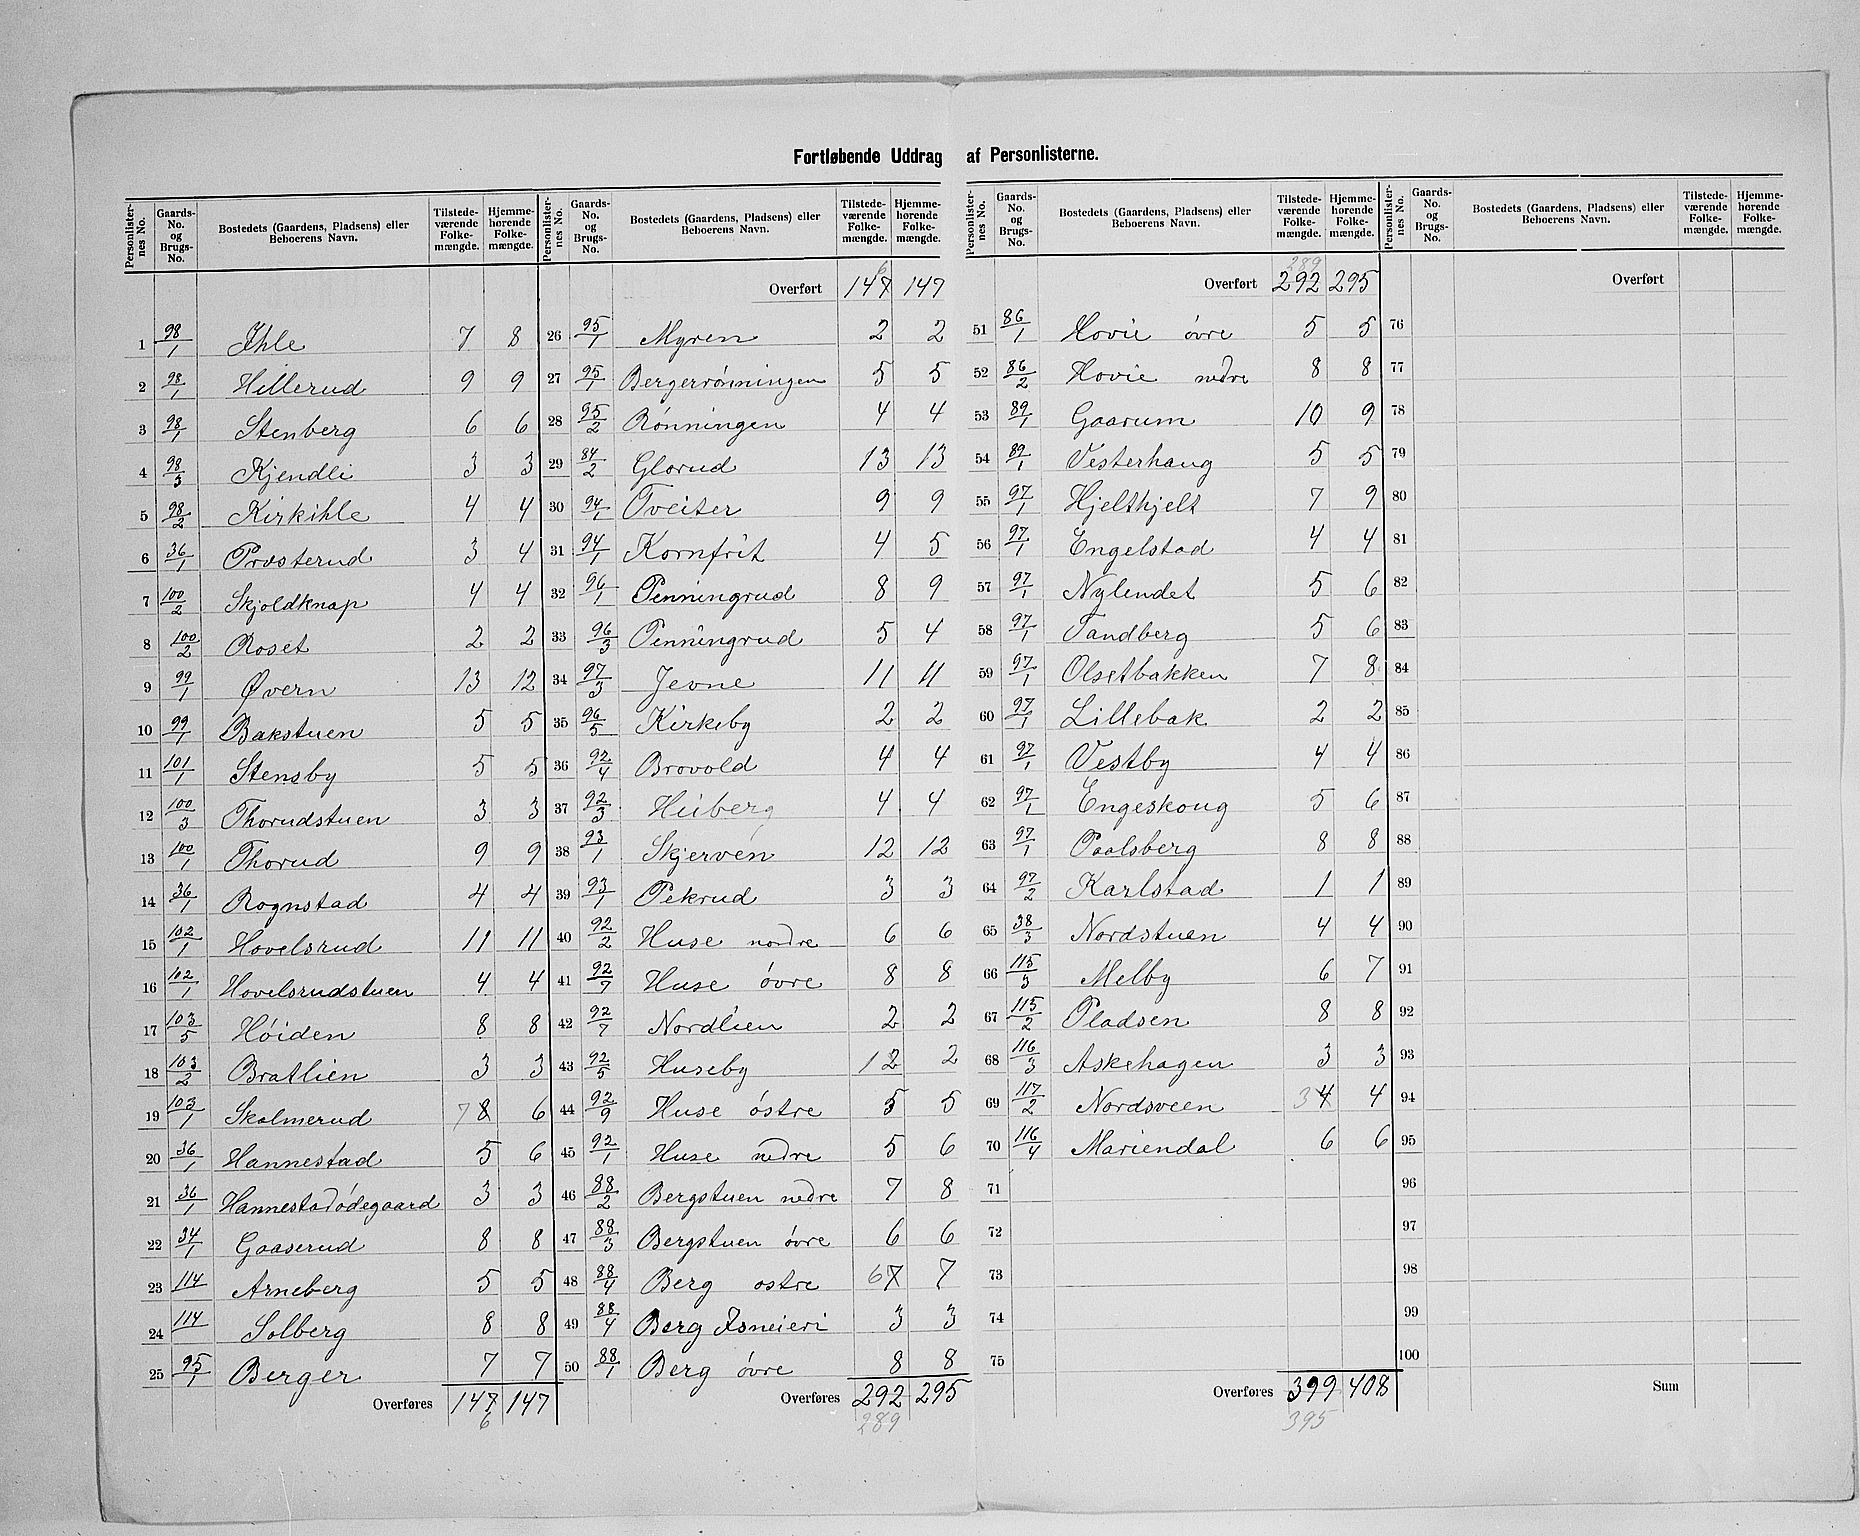 Fortløbende Uddrag af Personlisterne.
Personlisternes No. Gaards-No. og Brugs-No. Bostedets (Gaardens, Pladsens) eller Beboerens Navn. Tilstedeværende Folkemængde. Hjemmehørende Folkemængde.
1 98/1 Ihle 7 8
2 98/1 Hillerud 9 9
3 98/1 Stenberg 6 6
4 98/3 Kjendli 3 3
5 98/2 Kirkihle 4 4
6 36/1 Prosterud 3 4
7 100/2 Skjoldknap 4 4
8 100/2 Roset 2 2
9 99/1 Øvern 13 12
10 99/1 Bakstuen 5 5
11 101/1 Stensby 5 5
12 100/3 Thorudstuen 3 3
13 100/1 Thorud 9 9
14 36/1 Rognstad 4 4
15 102/1 Hovelsrud 11 11
16 102/1 Hovelsrudstuen 4 4
17 103/5 Høiden 8 8
18 103/2 Bratlien 3 3
19 103/1 Skolmerud 7 8 6
20 36/1 Hannestad 5 6
21 36/1 Hannestadødegaard 3 3
22 34/1 Gaaserud 8 8
23 114 Arneberg 5 5
24 114 Solberg 8 8
25 95/1 Berger 7 7
Overføres 147 147
6
Personlisternes No. Gaards-No. og Brugs-No. Bostedets (Gaardens, Pladsens) eller Beboerens Navn. Tilstedeværende Folkemængde. Hjemmehørende Folkemængde.
6
Overført 147 147
26 95/1 Myren 2 2
27 95/1 Bergerrönningen 5 5
28 95/2 Rønningen 4 4
29 84/2 Glorud 13 13
30 94/1 Tveiter 9 9
31 94/1 Kornfrit 4 5
32 96/1 Penningrud 8 9
33 96/3 Penningrud 5 4
34 97/3 Jevne 11 11
35 96/5 Kirkeby 2 2
36 92/4 Brovold 4 4
37 92/3 Huberg 4 4
38 93/1 Skjerven 12 12
39 93/1 Pekrud 3 3
40 92/2 Huse nordre 6 6
41 92/7 Huse övre 8 8
42 92/7 Nordlien 2 2
43 92/5 Huseby 12 2
44 92/9 Huse östre 5 5
45 92/1 Huse nedre 5 6
46 88/2 Bergstuen nedre 7 8
47 88/3 Bergstuen övre 6 6
48 88/4 Berg ostre 6 7 7
49 88/4 Berg 3 3
50 88/1 Berg övre 8 8
Overføres 292 295
289
Personlisternes No. Gaards-No. og Brugs-No. Bostedets (Gaardens, Pladsens) eller Beboerens Navn. Tilstedeværende Folkemængde. Hjemmehørende Folkemængde.
289
Overført 292 295
51 86/1 Hovie övre 5 5
52 86/2 Hovie nedre 8 8
53 89/1 Gaarum 10 9
54 89/1 Vesterhaug 5 5
55 97/1 Hjeltkjelt 7 9
56 97/1 Engelstad 4 4
57 97/1 Nylendet 5 6
58 97/1 Tandberg 5 6
59 97/1 Olsetbakken 7 8
60 97/1 Lillebak 2 2
61 97/1 Vestby 4 4
62 97/1 Engeskoug 5 6
63 97/1 Paalsberg 8 8
64 97/2 Karlstad 1 1
65 38/3 Nordstuen 4 4
66 115/3 Melby 6 7
67 115/2 Pladsen 8 8
68 116/3 Askehagen 3 3
69 117/2 Nordsveen 3 4 4
70 116/4 Mariendal 6 6
71
72
73
74
75
Overføres 399 408
395
Personlisternes No. Gaards-No. og Brugs-No. Bostedets (Gaardens, Pladsens) eller Beboerens Navn. Tilstedeværende Folkemængde. Hjemmehørende Folkemængde.
Overført
76
77
78
79
80
81
82
83
84
85
86
87
88
89
90
91
92
93
94
95
96
97
98
99
100
Sum